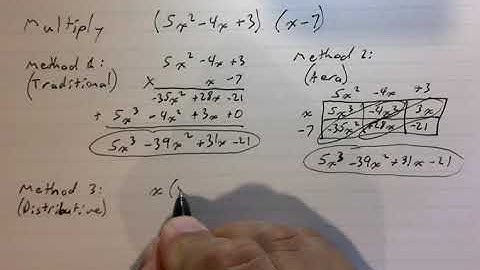 Multiply (5x² -4x +3) (x -7)
Method 1:
(Traditional)
5x² -4x +3
x x -7
-35x² +28x -21
+ 5x³ -4x² +3x +0
5x³ -39x² +31x -21
Method 2:
(Aera)
5x² -4x +3
x 5x³ -4x² 3x
-7 -35x² +28x -21
5x³ -39x² +31x -21
Method 3:
(Distributive)
x (